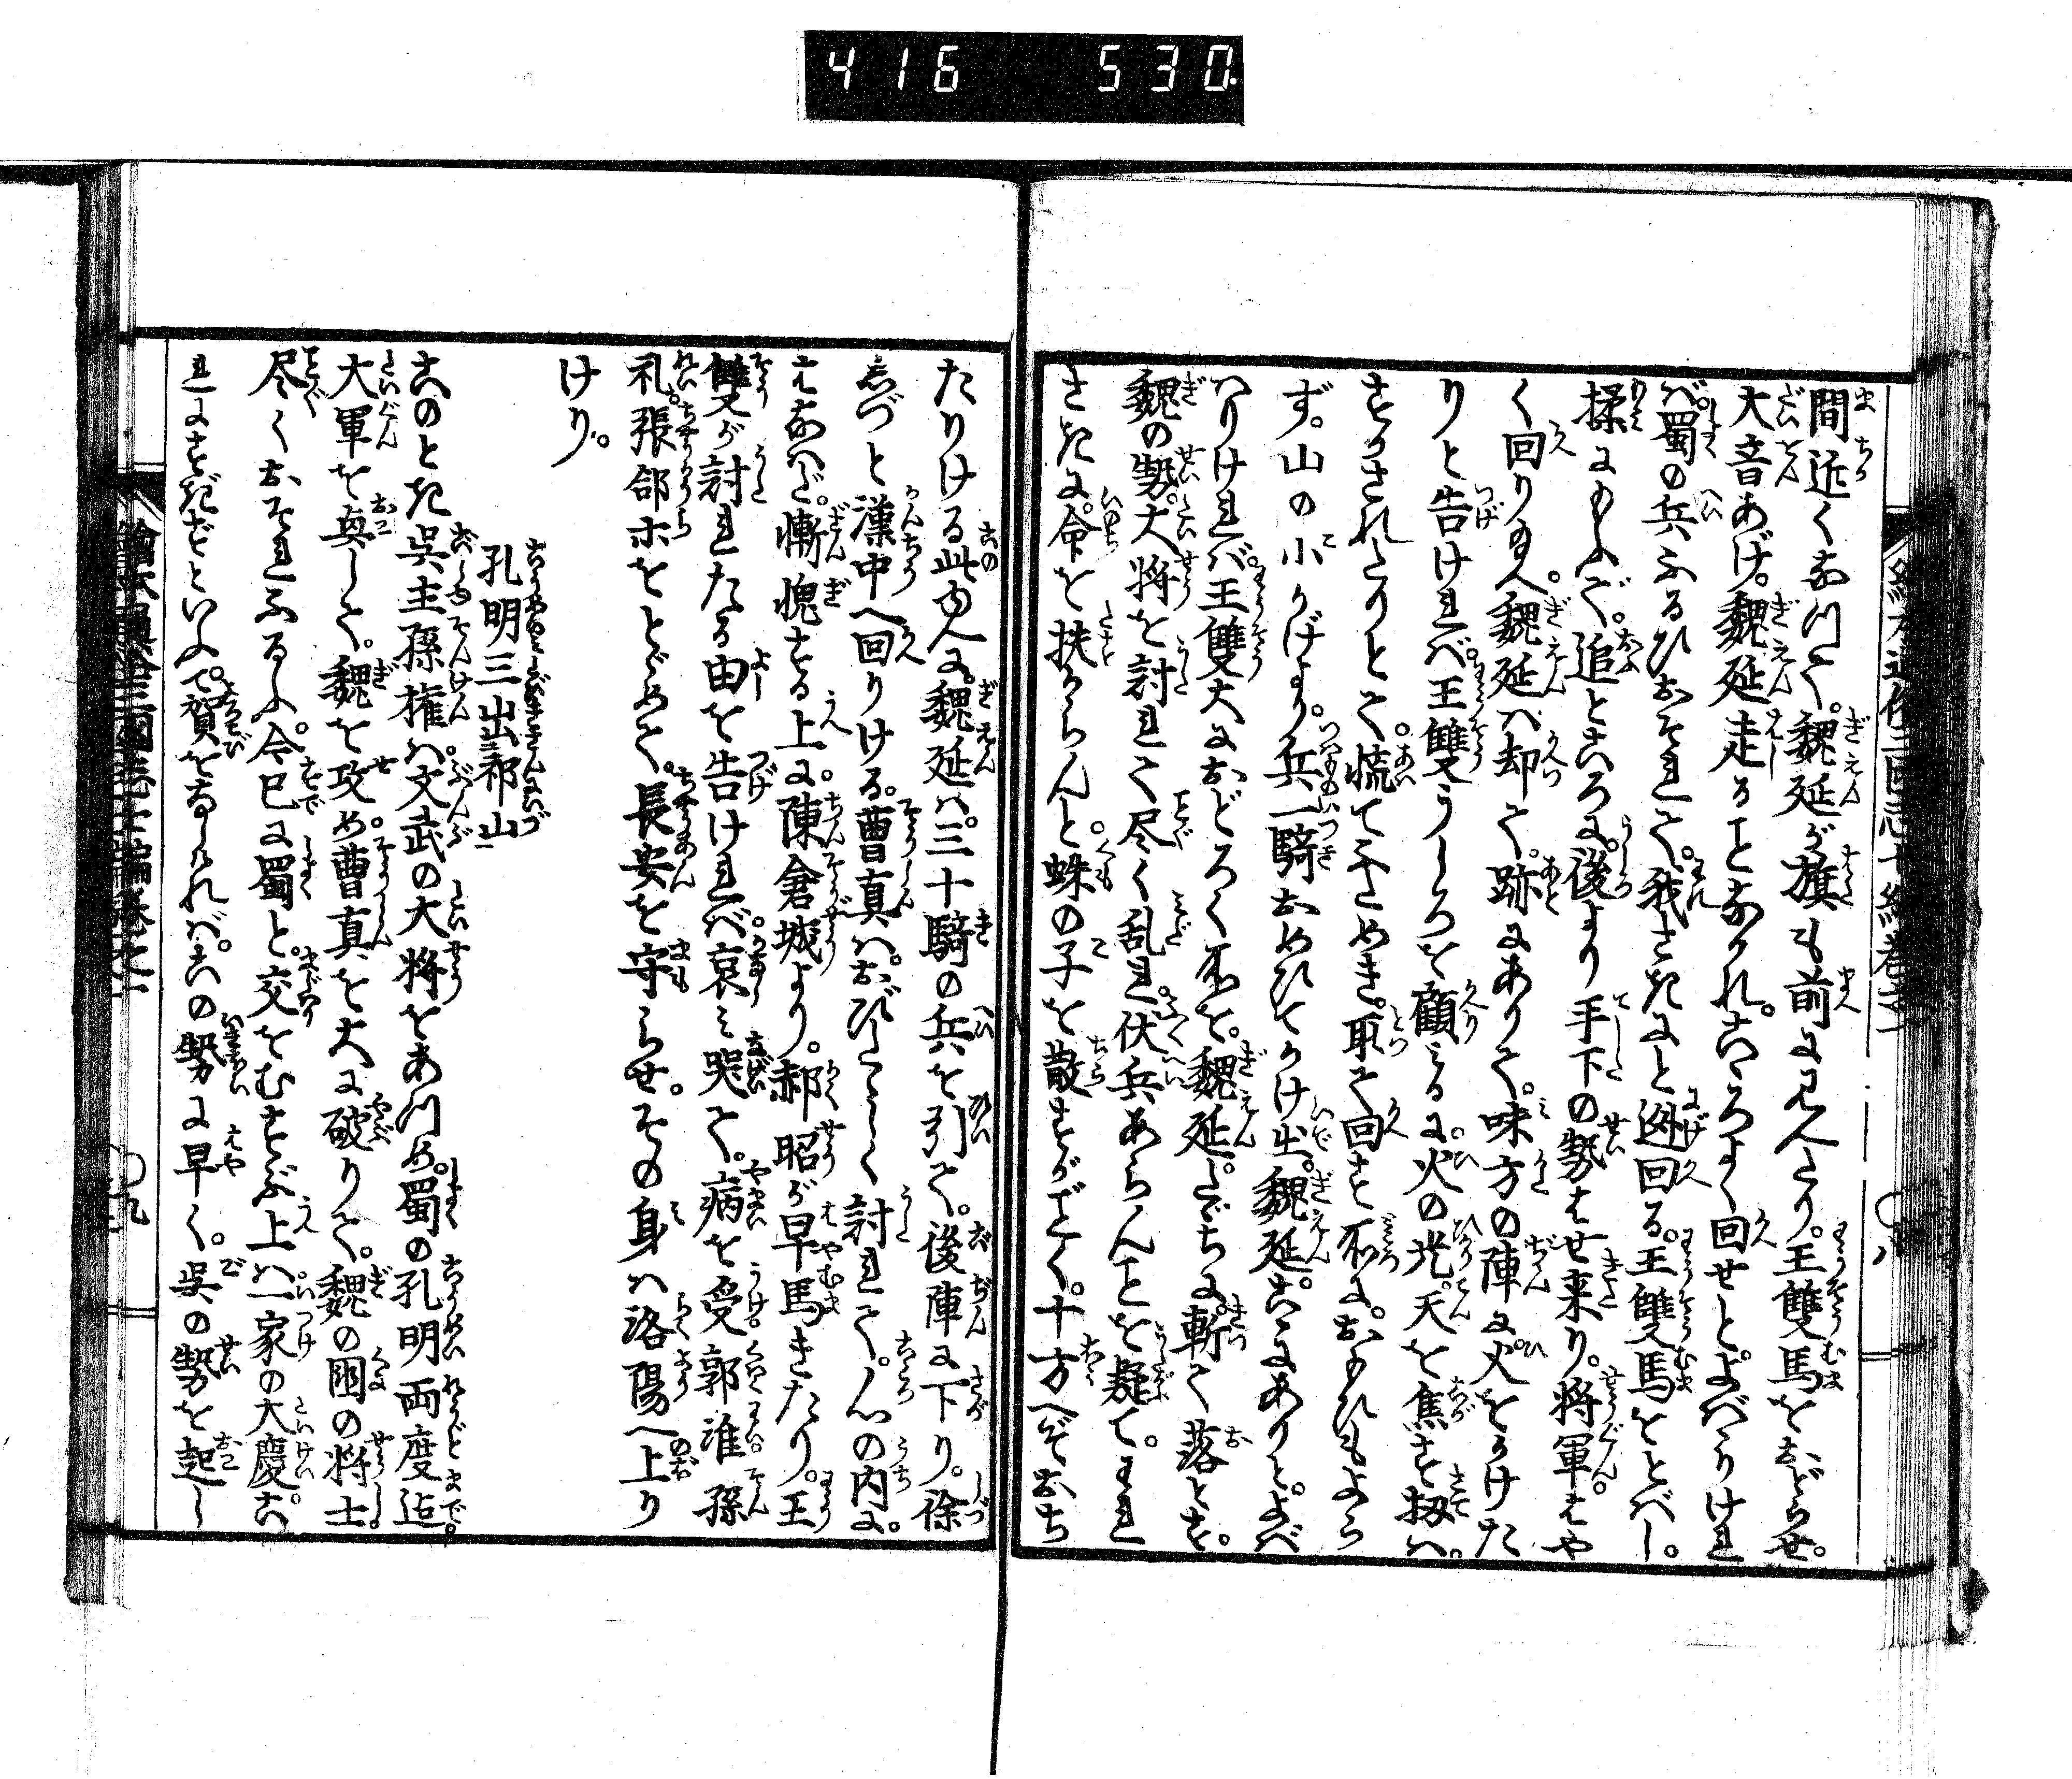 416 530
間近くなつて。魏延が旗も前に見へたり。王雙馬をおどらせ。
大音あげ。魏延走ることなかれ。こゝろよく回せと。よばゝりけれ
ば。蜀の兵ふるひおそれて。我さきにと迯回る。王雙馬をとばし。
揉にもふで。追ところに。後より手下の勢はせ来り。将軍。はや
く回り玉へ。魏延ハ却て。跡にありて。味方の陣に火をかけた
りと告けれバ。王雙うしろを顧みるに。火の光。天を焦す。扨ハ。
すかされたりとて。慌てふためき。取て回す所に。おもひもよら
ず。山の小かげより。兵一騎おめひてかけ出。魏延。こゝにありと。よば
ハりけれバ。王雙大におどろく所を。魏延。たちまちに斬て落とす。
魏の勢。大将を討れて尽く乱れ。伏兵あらんことを疑て。われ
さきに。命を扶からんと。蛛の子を散すがごとく。十方へぞおち
たりける此ゆへに。魏延ハ。三十騎の兵を引て。後陣に下り。徐
しづと漢中へ回りける。曹真ハ。おびたゝしく討れて。心の内に。
はなハだ。慚愧する上に。陳倉城より。郝昭が早馬きたり。王
雙が討れたる由を告けれバ。哀み哭て。病を受。郭淮。孫
礼。張郃ホをとゞめて。長安を守らせ。その身ハ洛陽へ上り
けり。
孔明三出祁山
このとき呉主孫権ハ文武の大将をあつめ。蜀の孔明両度迄。
大軍を興して。魏を攻め。曹真を大に破りて。魏の国の将士
尽くおそれふるふ。今已に蜀と。交をむすぶ上ハ。一家の大慶。こ
れにすぎずといふて。賀をなしけれバ。この勢に早く。呉の勢を起し
繪本通俗三國志七編巻之一 八
繪本通俗三國志七編巻之一 九